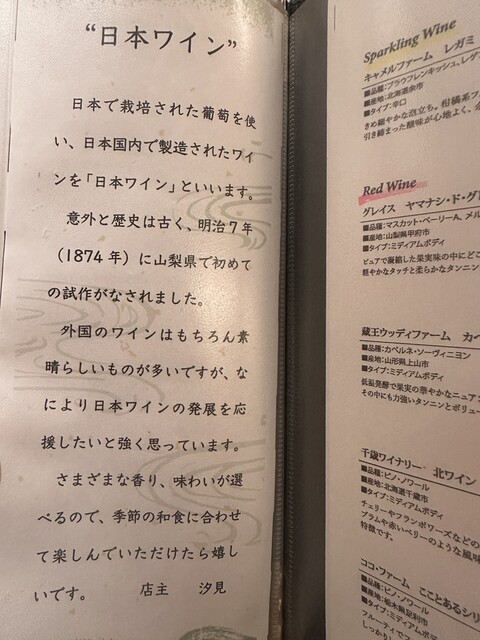 “日本ワイン”
日本で栽培された葡萄を使
い、日本国内で製造されたワイ
ンを「日本ワイン」といいます。
意外と歴史は古く、明治7年
(1874年)に山梨県で初めて
の試作がなされました。
外国のワインはもちろん素
晴らしいものが多いですが、な
により日本ワインの発展を応
援したいと強く思っています。
さまざまな香り、味わいが選
べるので、季節の和食に合わせ
て楽しんでいただけたら嬉し
いです。 店主 汐見
Sparkling Wine
キャメルファーム レガミ
■品種：ブラウフレンキッシュ、レゲ
■産地：北海道余市
■タイプ：辛口
きめ細やかな泡立ち。柑橘系フ
引き締まった酸味が心地よく、
Red Wine
グレイス ヤマナシ・ド・グレ
■品種：マスカット・ベーリーA、メル
■産地：山梨県甲府市
■タイプ：ミディアムボディ
ピュアで凝縮した果実味の中にどこ
軽やかなタッチと柔らかなタンニン
蔵王ウッディファーム カベ
■品種：カベルネ・ソーヴィニヨン
■産地：山形県上山市
■タイプ：ミディアムボディ
低温発酵で果実の華やかなニュア
その中にも力強いタンニンとボリュー
千歳ワイナリー 北ワイン
■品種：ピノ・ノワール
■産地：北海道千歳市
■タイプ：ミディアムボディ
チェリーやフランボワーズなどの
プラムや赤いベリーのような風味
特徴です。
ココ・ファーム こことあるシリ
■品種：ピノ・ノワール
■産地：栃木県足利市
■タイプ：ミディアムボディ
フルーティーで
しっかり